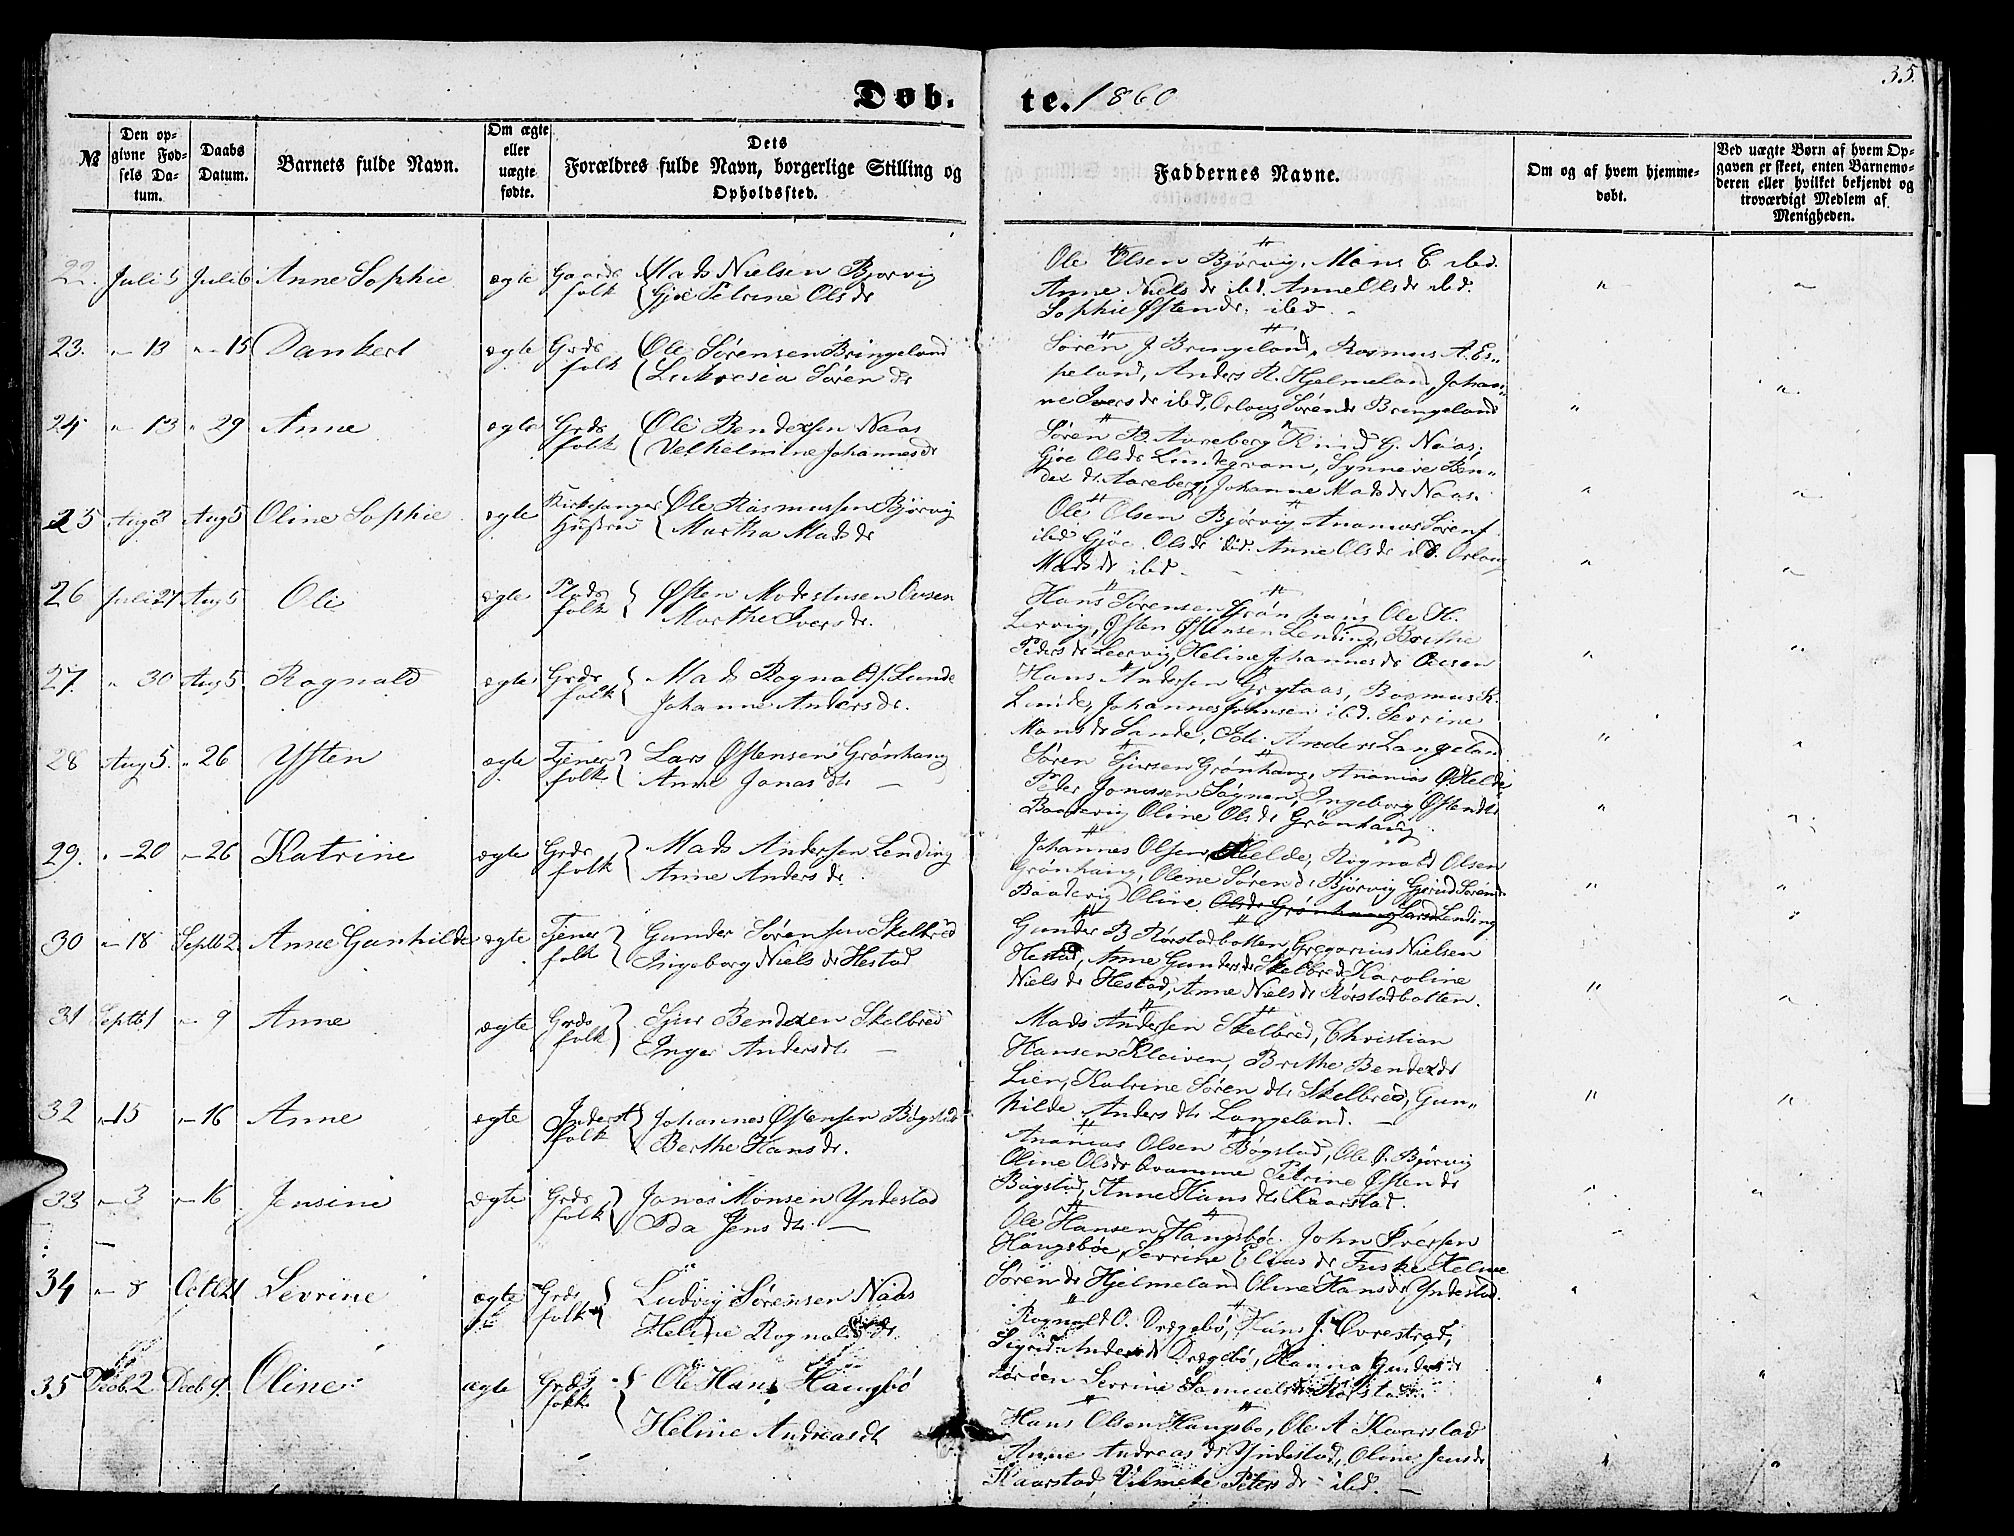 35.
Døb. te. 1860
№
Den op-
givne Fød-
sels Da-
tum.
Daabs
Datum.
Barnets fulde Navn.
Om ægte
eller
uægte
fødte.
Dets
Forældres fulde Navn, borgerlige Stilling og
Opholdssted.
Faddernes Navne.
Om og af hvem hjemme-
døbt.
Ved uægte Børn af hvem Op-
gaven er skeet, enten Barnemo-
deren eller hvilket bekjendt og
troværdigt Medlem af
Menigheden.
22. Juli 5 Juli 6 Anne Sophie ægte Gaards Mads Nielsen Bjørvig
folk Gjøe Petrine Olsdr
Ole Olsen Bjørvig, Mons E ibd.
Anne Nielsdr ibd. Anne Olsdr ibd.
Sophie Østensdr. ibd. -
23. " 13 " 15 Dankert ægte Grds Ole Sørensen Bringeland
folk Lukresia Sørendr
Søren J Bringeland, Rasmus A. Es-
peland, Anders R. Hjelmeland Johan-
ne Iversdr ibd, Orloug Sørendr Bringeland
24 " 13 " 29 Anne ægte Grds Ole Bendexsen Naas
folk Velhelmine Johannesdr
Søren B. Aareberg Knud G. Naas,
Gjøe Olsdr Lundegram, Synneve Ben-
dexdr Aareberg, Johanne Madsdr Naas.
25 Aug 3 Aug 5 Oline Sophie ægte Kirkesanger Ole Rasmussen Bjørvig
Hustru Martha Madsdr
Ole Olsen Bjørvig Ananias Sørens.
ibd Gjøe Olsdr ibd. Anne Olsdr ibd. Orloug
Madsdr ibd -
26 Juli 27 Aug 5 Ole ægte Plads Østen Modestusen Ousen
folk Marthe Iversdr.
Hans Sørensen Grønhaug Ole H.
Lervig, Østen Østensen Lending, Brithe
Pedersdr Leervig, Heline Johannesdr Ousen
27. " 30 Aug 5. Ragnald ægte Grds Mads Ragnalds. Lunde
folk Johanne Andersdr.
Hans Andersen Grytaas, Rasmus R.
Lunde, Johannes Johnsen ibd. Sevrine
Monsdr Sande, Ide Anders Langeland
28 Aug 5. " 26 Østen ægte Tjener Lars Østensen Grønhaug
folk Anne Jonasdtr -
Søren Sjursen Grønhaug, Ananias O. Helde
Peder Jonassen Sagnen, Ingeborg Østendtr
Baadevig Oline Olsdtr Grønhaug.
29. " -20 " 26 Katrine ægte Grds Mads Andersen Lending
folk Anne Andersdr.
Johannes Olsen Helde, Ragnald Olsen
Grønhaug, Olene Sørensdtr Bjørvig Gjerud Sørensdr
Baadevig Oline Olsdr Grønhaug Larsdr Lending
30 " 18 Septb 2. Anne Gunhilde ægte Tjener Gunder Sørensen Skelbred
folk Ingeborg Nielsdr Hestad
Gunder B Rørstadbotten, Gregorius Nielsen
Hestad, Anne Gundersdr Skelbred Karoline
Nielsdr Hestad, Anne Nielsdr Rørstadbotten.
31 Septb 1 " 9 Anne ægte Grds Sjur Bendexen Skelbred
folk Inger Andersdtr -
Mads Andersen Skelbred, Christian
Hansen Kleiven, Brithe Bendexdr
Lien, Katrine Sørendtr Skelbred, Gun-
hilde Andersdtr Langeland. -
32 " 15 " 16 Anne ægte Inderst Johannes Østensen Bøgstad
folk Berthe Hansdr.
Ananias Olsen Bøgstad, Ole O. Bjørvig
Oline Olsdr Qvamme Petrine Østensdr
Bøgstad, Anne Hansdtr Kaarstad.
33 " 3 " 16 Jensine ægte Grds Jonas Monsen Yndestad
folk Ida Jensdtr -
Ole Hansen Haugsbøe John Iversen
Haugsbøe Sevrine Eliasdr Fuske Heline
Sørendr Hjelmeland Oline Hansdr Yndestad.
34 " 8 Octb 21 Sevrine ægte Grds Ludvig Sørensen Naas
folk Heline Ragnaldsdr
Ragnald O. Drægebø, Hans J. Øvrestrad,
Sigrid Andersdr Drægebø, Hanna Gundersdr
Sevrine Samuelsdr Rørstad.
35 Decb. 2 Decb 9. Oline ægte Grds Ole Hans. Haugsbø
folk Heline Andreasdt
Hans Olsen Haugsbø, Ole A Kaarstad
Anne Andreasdr Yndestad, Oline Jensdr
Kaarstad, Vilmeke Petersdr ibd. -